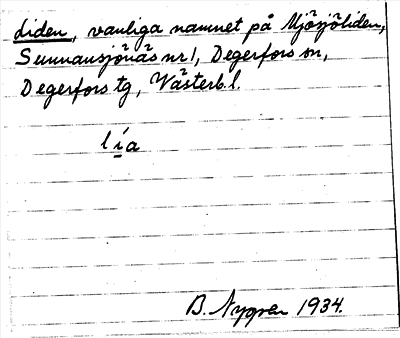 Liden, vanliga namnet på Mjösjöliden,
Sunnansjönäs nr 1, Degerfors sn,
Degerfors tg, Västerb. l.
lía
B. Nygren 1934.